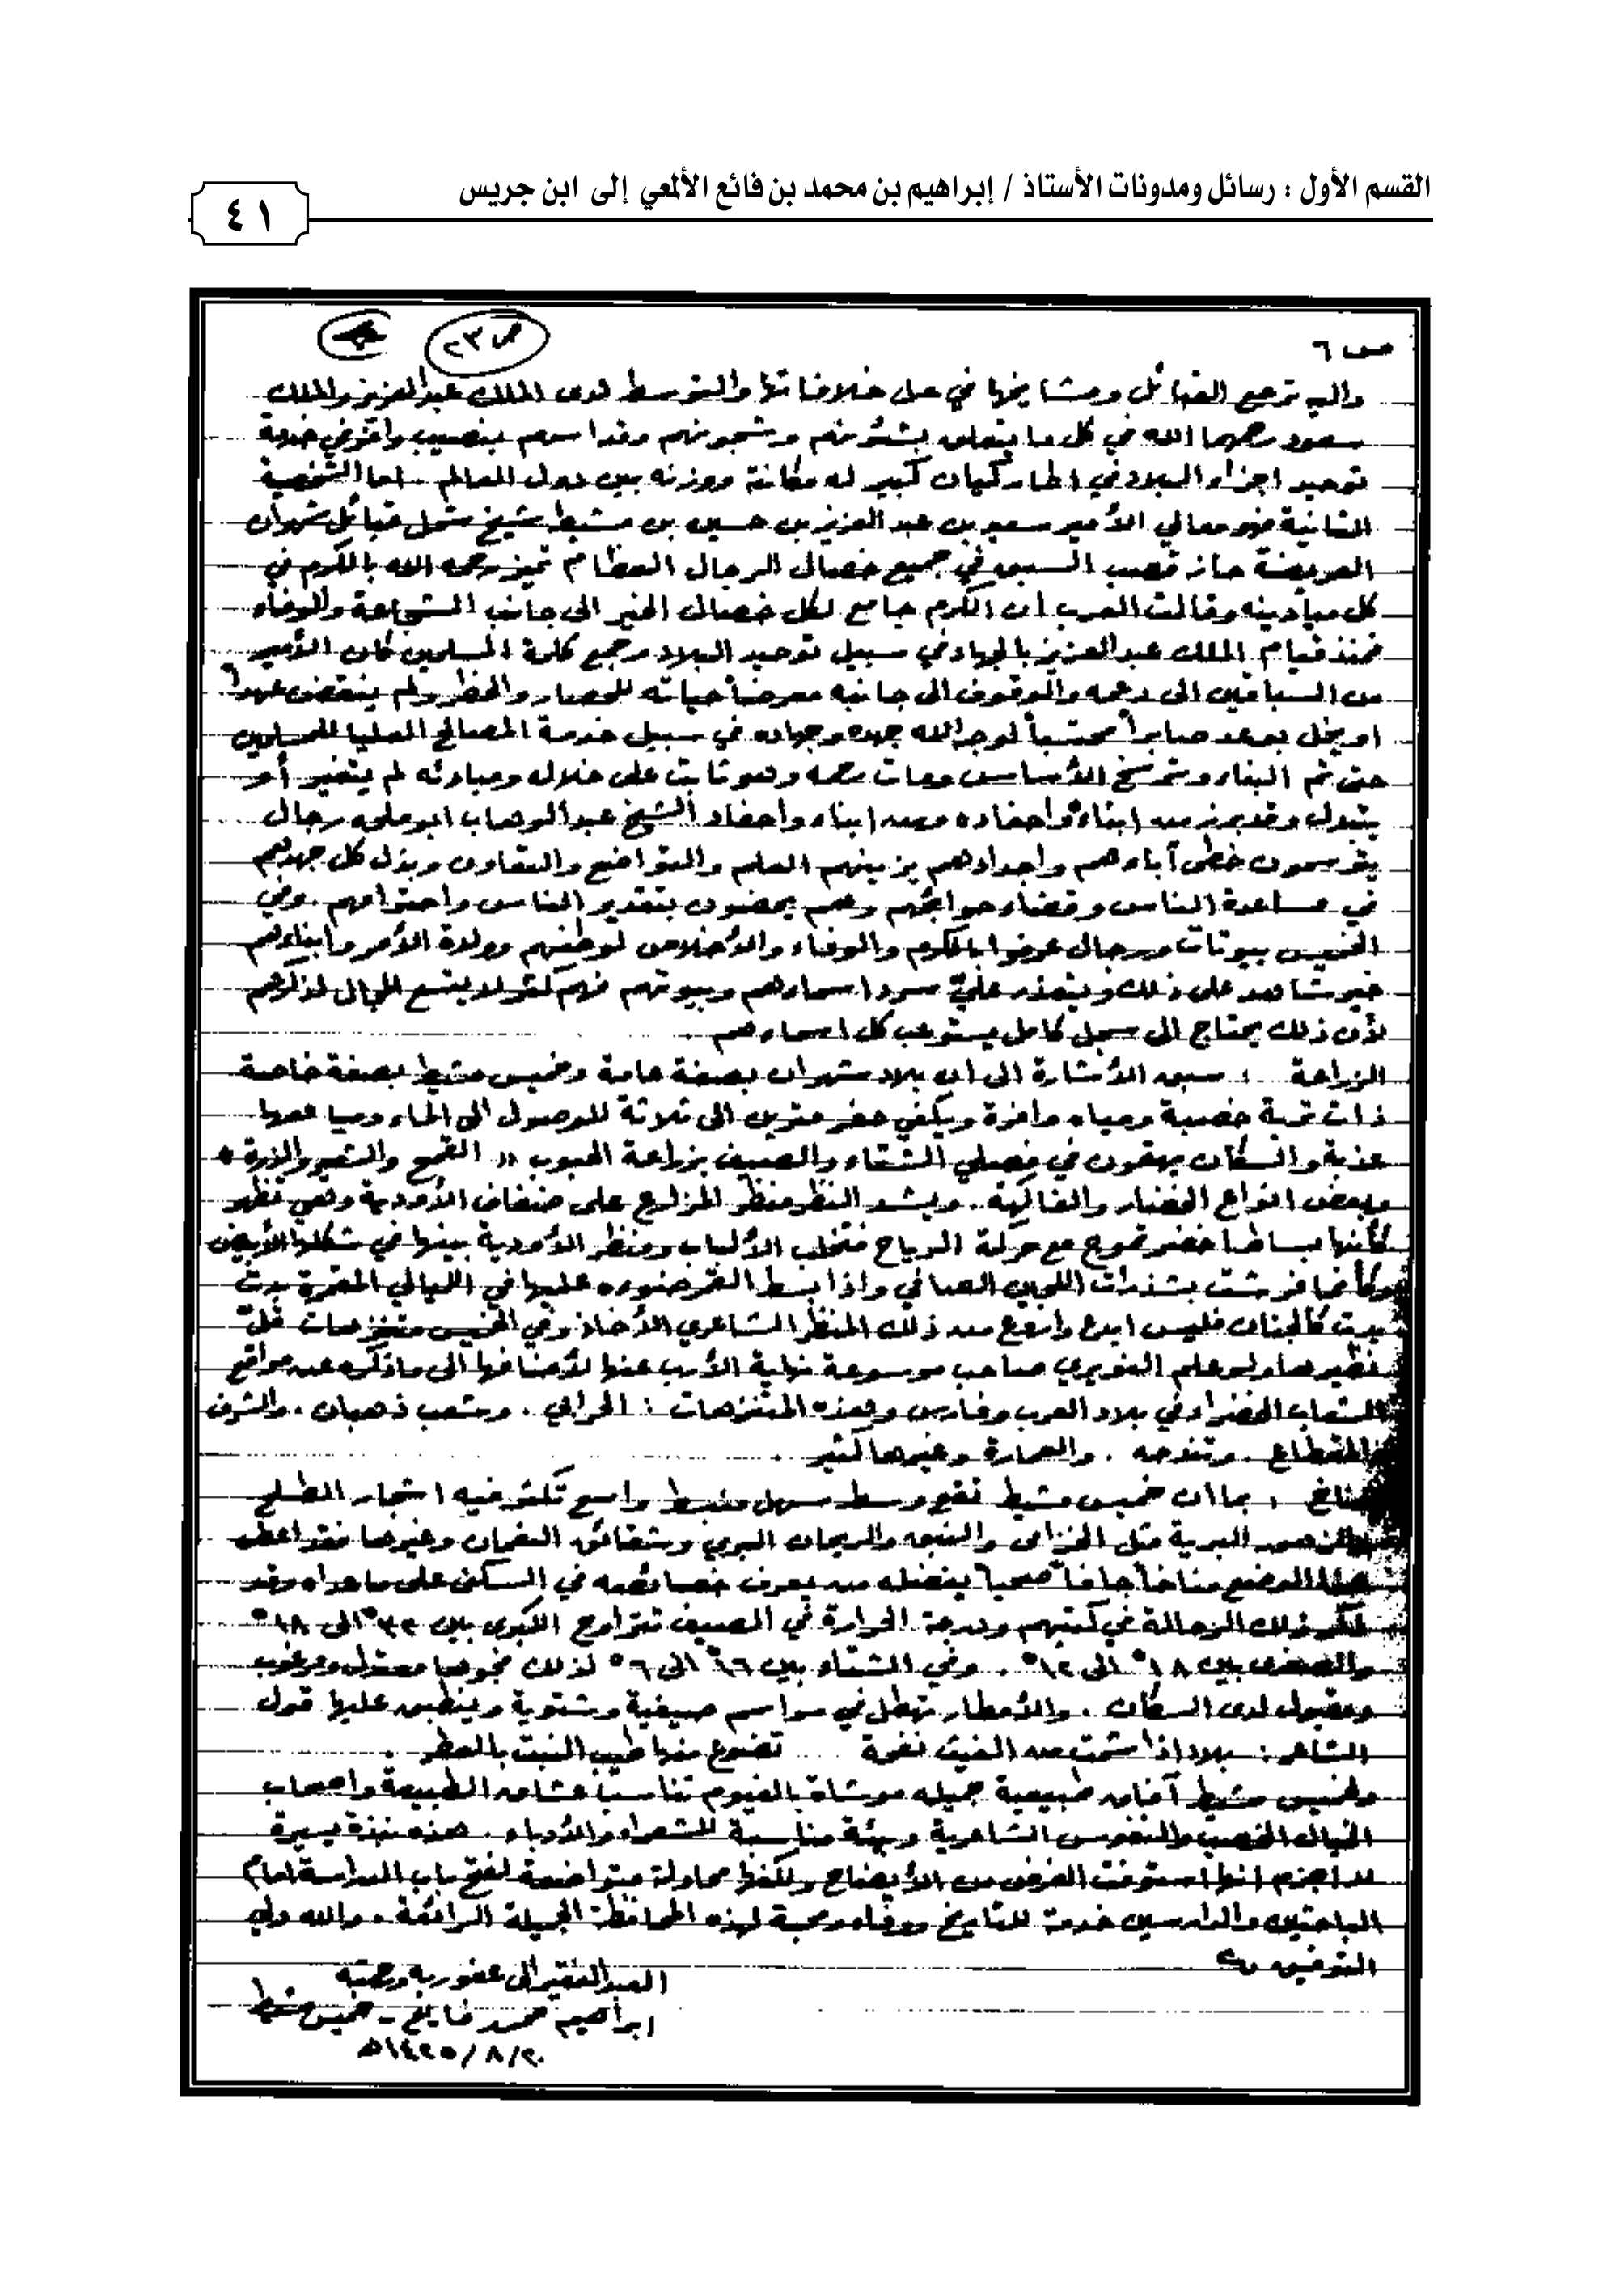 القسم الأول : رسائل ومدونات الأستاذ / إبراهيم بن محمد بن فائع الألمعي إلى ابن جريس
٤١
ص ٦
ص ٢٣
واليه ترجع القبائل ومشايخها في حل خلافاتها والتوسط لدى الملك عبدالعزيز والملك
سعود رحمهما الله في كل ما يتعلق بشئونهم وشجونهم وقد اسهم بنصيب وافر في خدمة
توحيد اجزاء البلاد في اطار كيان كبير له مكانة ووزنه بين دول العالم . اما الشخصية
الثانية فهو معالي الأمير سعيد بن عبد العزيز بن حسين بن مشيط شيخ شمل قبائل شهران
العريضة حاز قصب السبق في جميع خصال الرجال العظام تميز رحمه الله بالكرم في
كل ميادينه وقالت العرب ان الكرم جامع لكل خصال الخير الى جانب الشجاعة والوفاء
فمنذ قيام الملك عبدالعزيز بالجهاد في سبيل توحيد البلاد وجمع كلمة المسلمين كان الأمير
من السباقين الى دعمه والوقوف الى جانبه معرضاً حياته للحصار والخطر ولم ينقض عهداً
او يخل بوعد صابراً محتسباً لوجه الله جهده وجهاده في سبيل خدمة المصالح العليا للمسلمين
حتى تم البناء وترسخ الأساس ومات رحمه وهو ثابت على خلاله ومبادئه لم يتغير أو
يتبدل وقد برز من ابناءه واحفاده ومن ابناء واحفاد الشيخ عبدالوهاب ابو ملحه رجال
يترسمون خطى آباءهم واجدادهم يزينهم العلم والتواضع والتعاون وبذل كل جهدهم
في مساعدة الناس وقضاء حوائجهم وهم يحضون بتقدير الناس واحترامهم . وفي
الخميس بيوتات ورجال عرفوا بالكرم والوفاء والأخلاص لوطنهم وولاة الأمر وابناءهم
خير شاهد على ذلك ويتعذر عليّ سرد اسماءهم وبيوتهم فهم كثر لا يتسع المجال لذكرهم
لأن ذلك يحتاج الى سجل كامل يستوعب كل اسماءهم .
الزراعة : سبق الأشارة الى ان بلاد شهران بصفة عامة وخميس مشيط بصفة خاصة
ذات تربة خصبة ومياه وافرة ويكفي حفر مترين الى ثلاثة للوصول الى الماء ومياهها
عذبة والسكان يهتمون في فصلي الشتاء والصيف بزراعة الحبوب " القمح والشعير والذرة "
وبعض انواع الخضار والفاكهة . ويشد النظر منظر المزارع على ضفاف الأودية وهي تظهر
كأنها بساطا اخضر تموج مع حركة الرياح فتخلب الألباب ومنظر الأودية بينها في شكلها الأبيض
وكأنما فرشت بشذرات اللجين الصافي واذا بسط القمر ضوءه عليها في الليالي المقمرة بدت
بدت كالجنان فليس ابدع واروع من ذلك المنظر الشاعري الأخاذ وفي الخميس متنزهات قلّ
نظيرها ولو علم النويري صاحب موسوعة نهاية الأرب عنها لأضافها الى ما ذكره عن مواقع
الشعاب الخضراء في بلاد العرب وفارس وهذه المتنزهات : الحرابي . وشعب ذهبان . والشرف
والمقطاع . وتندحه . والعمارة وغيرها كثير .
مناخ : بما ان خميس مشيط تقع وسط سهل منبسط واسع تكثر فيه اشجار الطلح
البرية مثل الخزامى والشيح والريحان البري وشقائق النعمان وغيرها فقد اعطى
هذا الوضع مناخاً جافاً صحياً يفضله من يعرف خصائصه في السكنى على ما عداه وقد
ذكر ذلك الرحالة في كتبهم ودرجة الحرارة في الصيف تتراوح الكبرى بين ٣٢° الى ١٨°
والصغرى بين ١٨° الى ١٢° . وفي الشتاء بين ١٦° الى ٦° لذلك فجوها معتدل ومرغوب
ومقبول لدى السكان . والأمطار تهطل في مواسم صيفية وشتوية وينطبق عليها قول
الشاعر : بلاد اذا شمت من الغيث نفحة تضوع منها طيب النبت بالعطر .
ولخميس مشيط آفاق طبيعية جميله موشاة بالغيوم تناسب عشاق الطبيعة واصحاب
الخيال الخصب والنفوس الشاعرية وبيئة مناسبة للشعراء والأدباء . هذه نبذة يسيرة
لا اجزم انها استوفت الغرض من الأيضاح ولكنها محاولة متواضعة لفتح باب الدراسة امام
الباحثين والدارسين خدمة للتاريخ ووفاء ومحبة لهذه المحافظة الجميلة الرائعة . والله ولي
التوفيق
العبد الفقير الى عفو ربه ورحمته
ابراهيم محمد فايع - خميس مشيط
٢٠/٨/١٤٢٥هـ